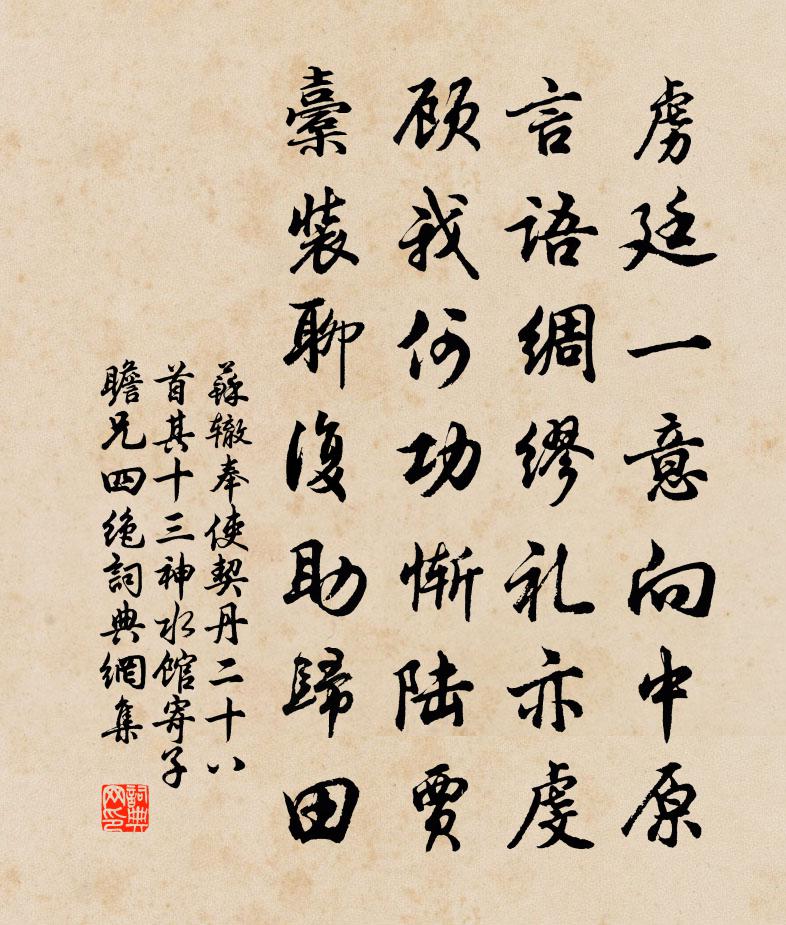 虜廷一意向中原
言語綢繆礼亦虔
顧我何功慚陸賈
橐裝聊復助歸田
蘇轍奉使契丹二十八
首其十三神水館寄子
瞻兄四絕詞典網集
詞典网印